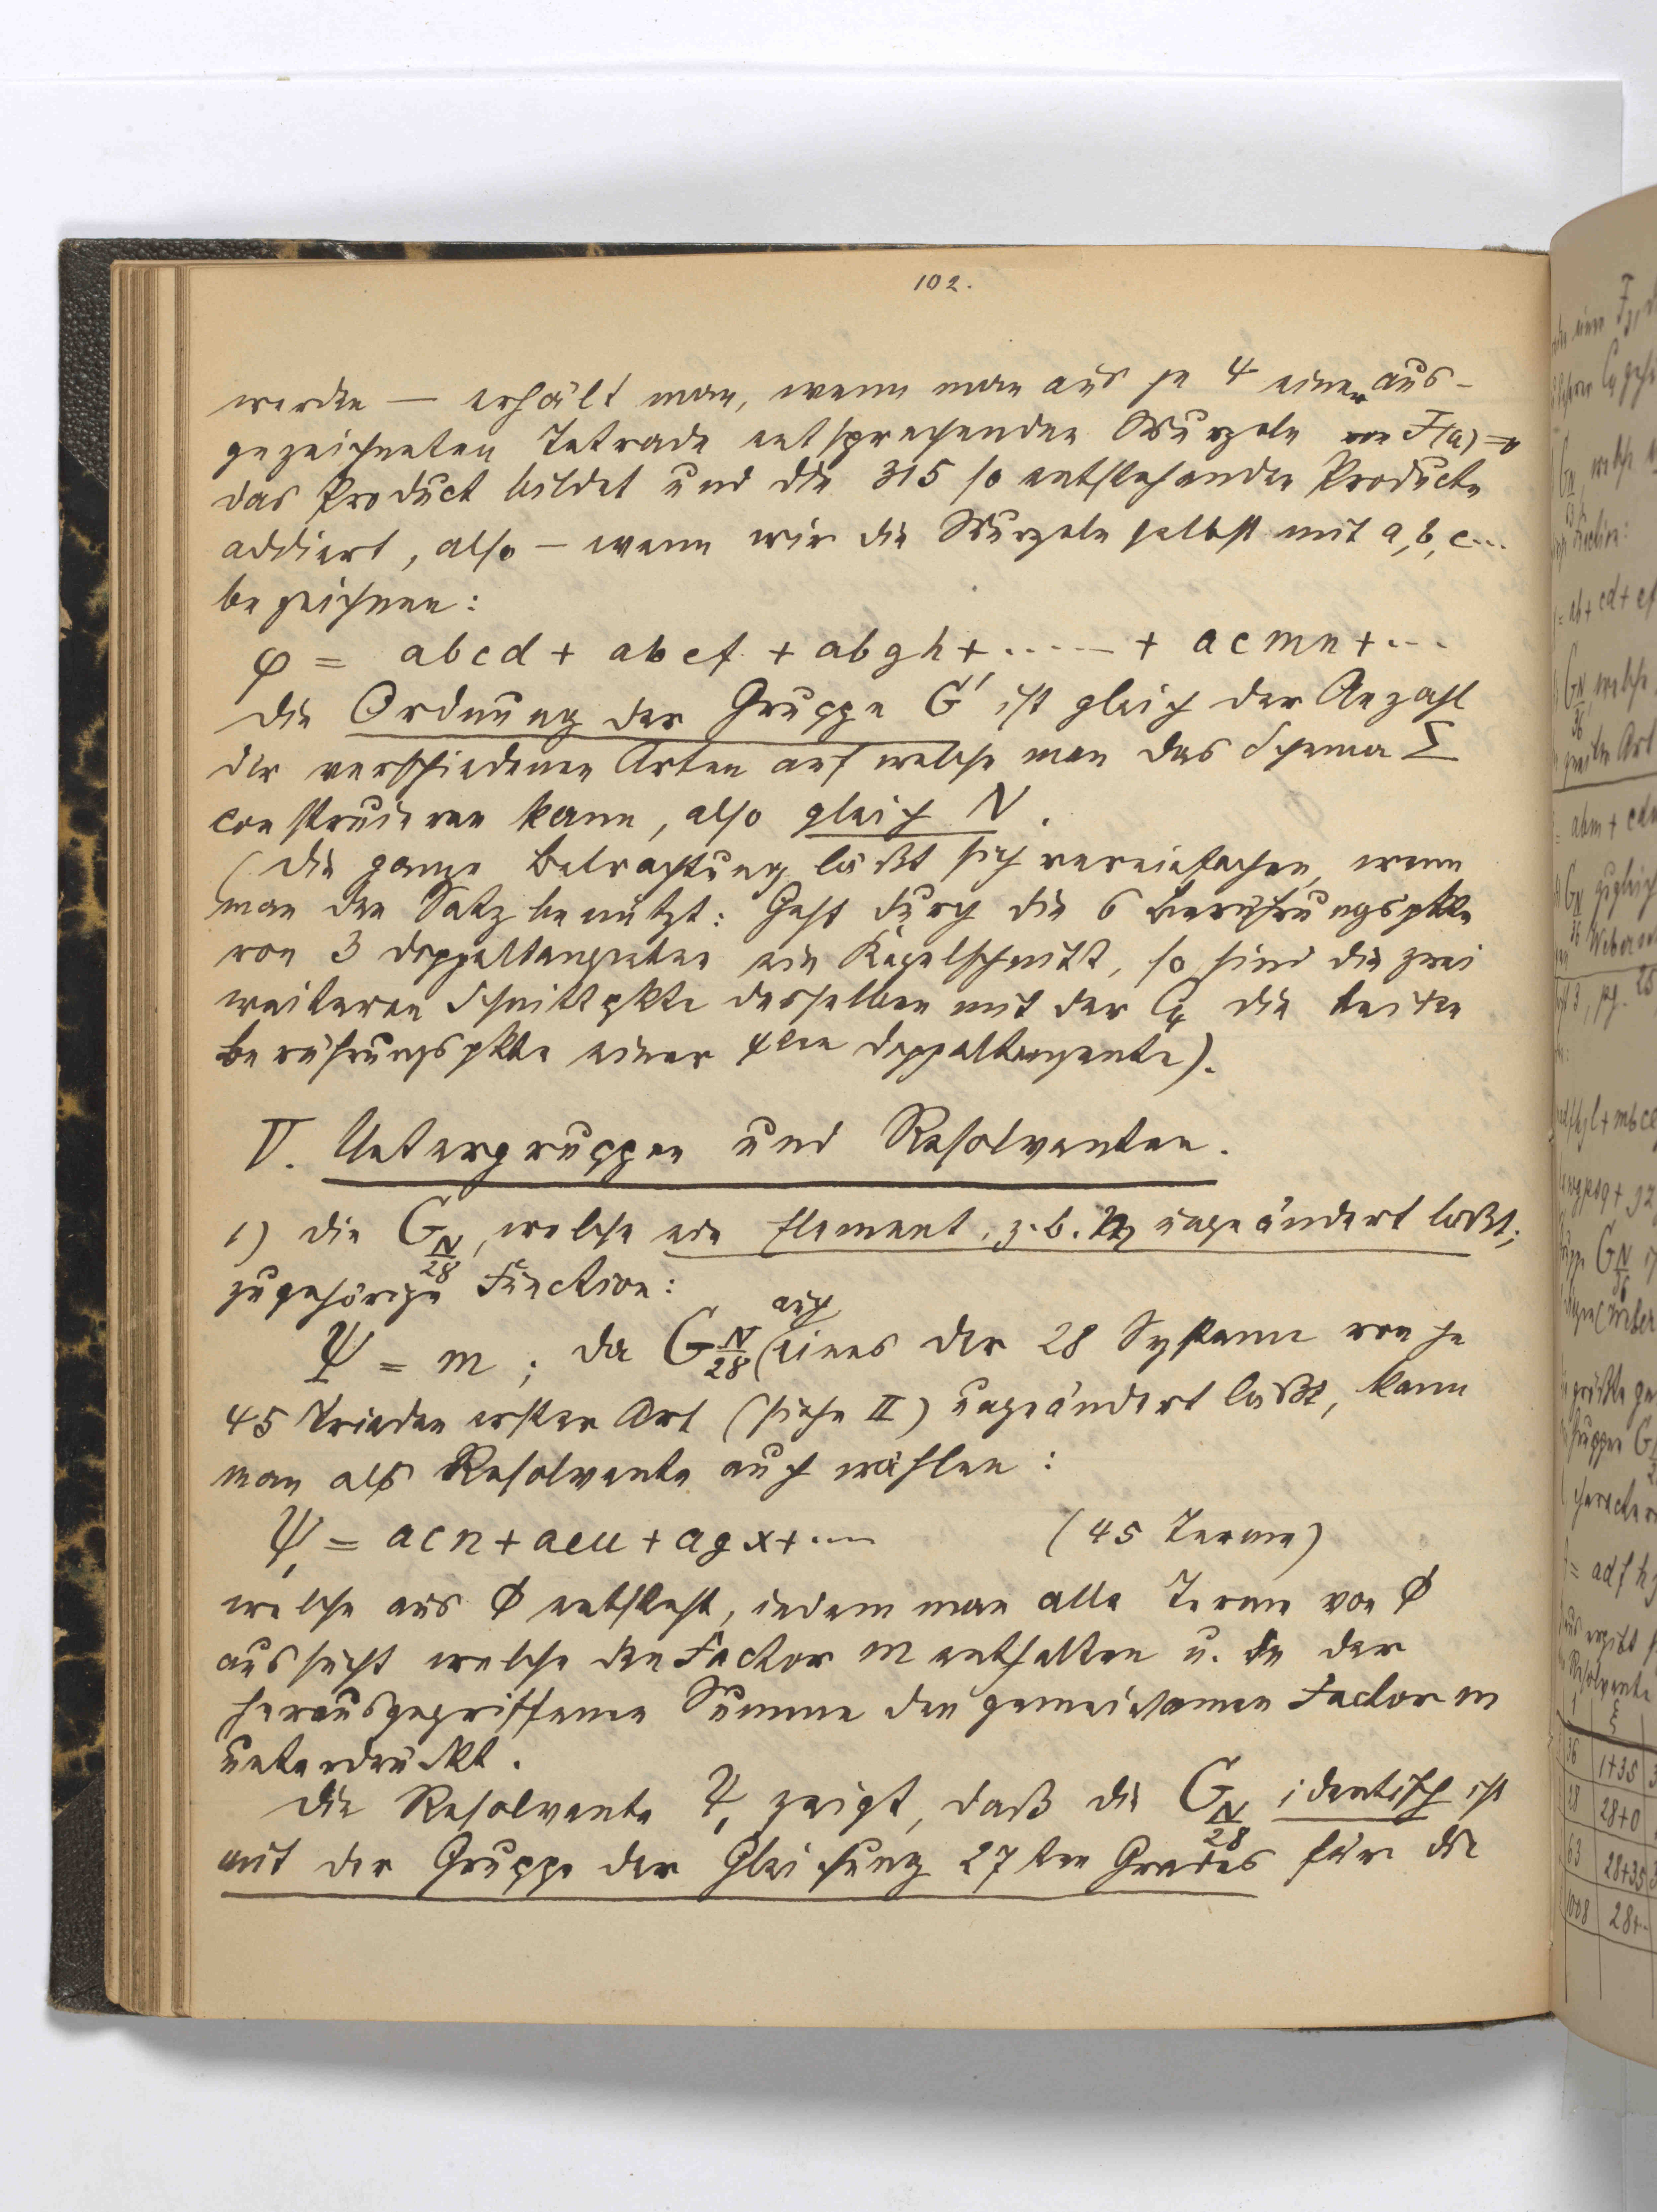 102.
werden — erhält man, wenn man aus je 4 einer aus-
gezeichneten Tetrade entsprechenden Wurzeln von F(a)=0
das Product bildet und die 315 so entstehenden Producte
addiert, also — wenn wir die Wurzeln selbst mit a, b, c...
bezeichnen:
φ = abcd + abef + abgh + ..... + acmn + ...
Die Ordnung der Gruppe G' ist gleich der Anzahl
der verschiedenen Arten auf welche man das Schema Σ
construieren kann, also gleich N.
(Die ganze Betrachtung läßt sich vereinfachen, wenn
man den Satz benützt: Geht durch die 6 Berührungspkte
von 3 Doppeltangenten ein Kegelschnitt, so sind die zwei
weiteren Schnittpkte desselben mit der C4 die beiden
Berührungspkte einer 4ten Doppeltangente).
V. Untergruppen und Resolventen.
1) Die G_{N/28}, welche ein Element, z.b. m ungeändert läßt;
zugehörige Function:
Ψ = m ; da G_{N/28} auch eines der 28 Systeme von je
45 Triaden erster Art (siehe II) ungeändert läßt, kann
man als Resolvente auch wählen:
Ψ, = acn + aeu + agx + .... (45 Terme)
welche aus Φ entsteht, indem man alle Terme von Φ
aussucht welche den Factor m enthalten u. in der
herausgegriffenen Summe den gemeinsamen Factor m
unterdrückt.
Die Resolvente Ψ, zeigt, daß die G_{N/28} identisch ist
mit der Gruppe der Gleichung 27ten Grades für die